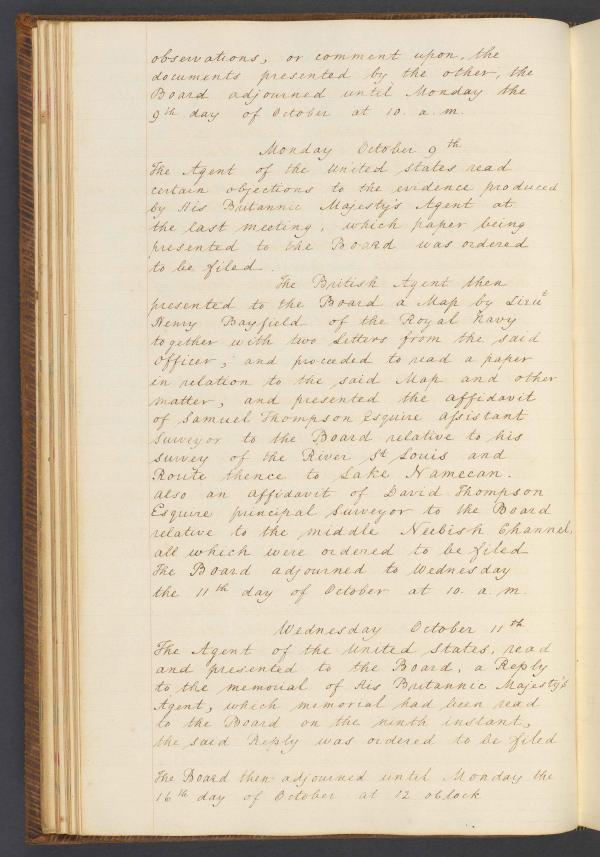 observations, or comment upon, the
documents presented by the other, the
Board adjourned until Monday the
9th day of October at 10. a. m.
Monday October 9th
The Agent of the United States read
certain objections to the evidence produced
by His Britannic Majesty's Agent at
the last meeting, which paper being
presented to the Board was ordered
to be filed.
The British Agent then
presented to the Board a Map by Lieut
Henry Bayfield of the Royal Navy
together with two Letters from the said
Officer; and proceeded to read a paper
in relation to the said Map and other
matter, and presented the affidavit
of Samuel Thompson Esquire assistant
Surveyor to the Board relative to his
survey of the River St Louis and
Route thence to Lake Namecan.
also an affidavit of David Thompson
Esquire principal Surveyor to the Board
relative to the middle Neebish Channel,
all which were ordered to be filed
The Board adjourned to Wednesday
the 11th day of October at 10. a. m.
Wednesday October 11th
The Agent of the United States, read
and presented to the Board, a Reply
to the memorial of His Britannic Majesty's
Agent, which memorial had been read
to the Board on the ninth instant,
the said Reply was ordered to be filed
The Board then adjourned until Monday the
16th day of October at 12 oblock